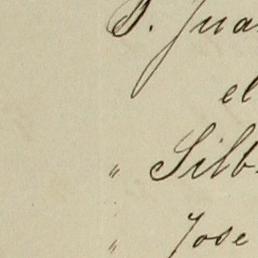 D. Jua
el
" Silb
" Jose